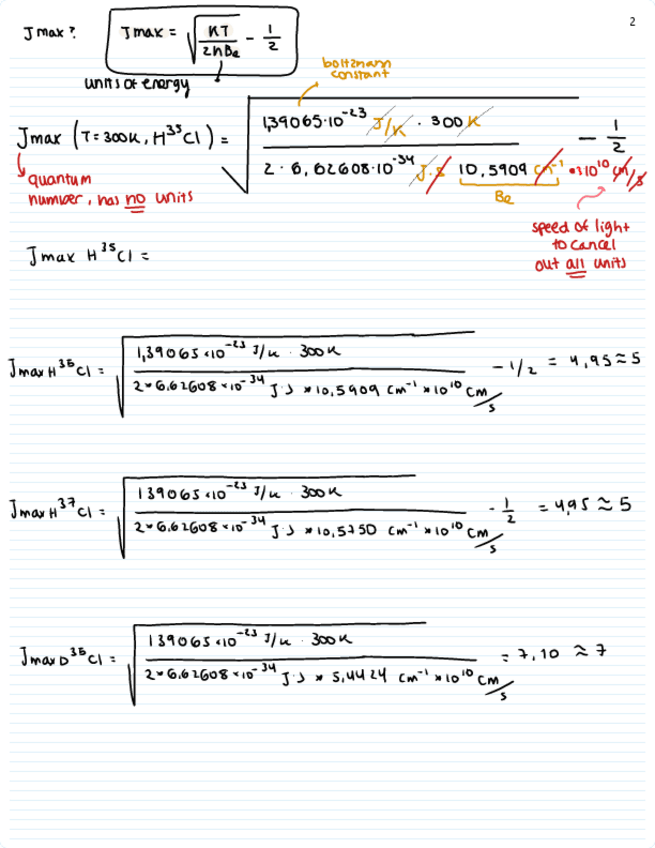 2
J max ? J max = √(KT / 2hBe) - 1/2
units of energy
boltzmann
constant
Jmax (T=300K, H³⁵Cl) = √(1,39065·10⁻²³ J/K · 300K / 2 · 6,62608·10⁻³⁴ J·s 10,5909 cm⁻¹ •310¹⁰ cm/s) - 1/2
Be
quantum
number, has no units
speed of light
to cancel
out all units
Jmax H³⁵Cl =
Jmax H³⁵Cl = √(1,39065×10⁻²³ J/K · 300K / 2×6,62608×10⁻³⁴ J·s ×10,5909 cm⁻¹ ×10¹⁰ cm/s) - 1/2 = 4,95≈5
Jmax H³⁷Cl = √(139065×10⁻²³ J/K · 300K / 2×6,62608×10⁻³⁴ J·s ×10,5750 cm⁻¹ ×10¹⁰ cm/s) - 1/2 = 4,95 ≈ 5
Jmax D³⁵Cl = √(139065×10⁻²³ J/K · 300K / 2×6,62608×10⁻³⁴ J·s × 5,4424 cm⁻¹ ×10¹⁰ cm/s) = 7,10 ≈ 7